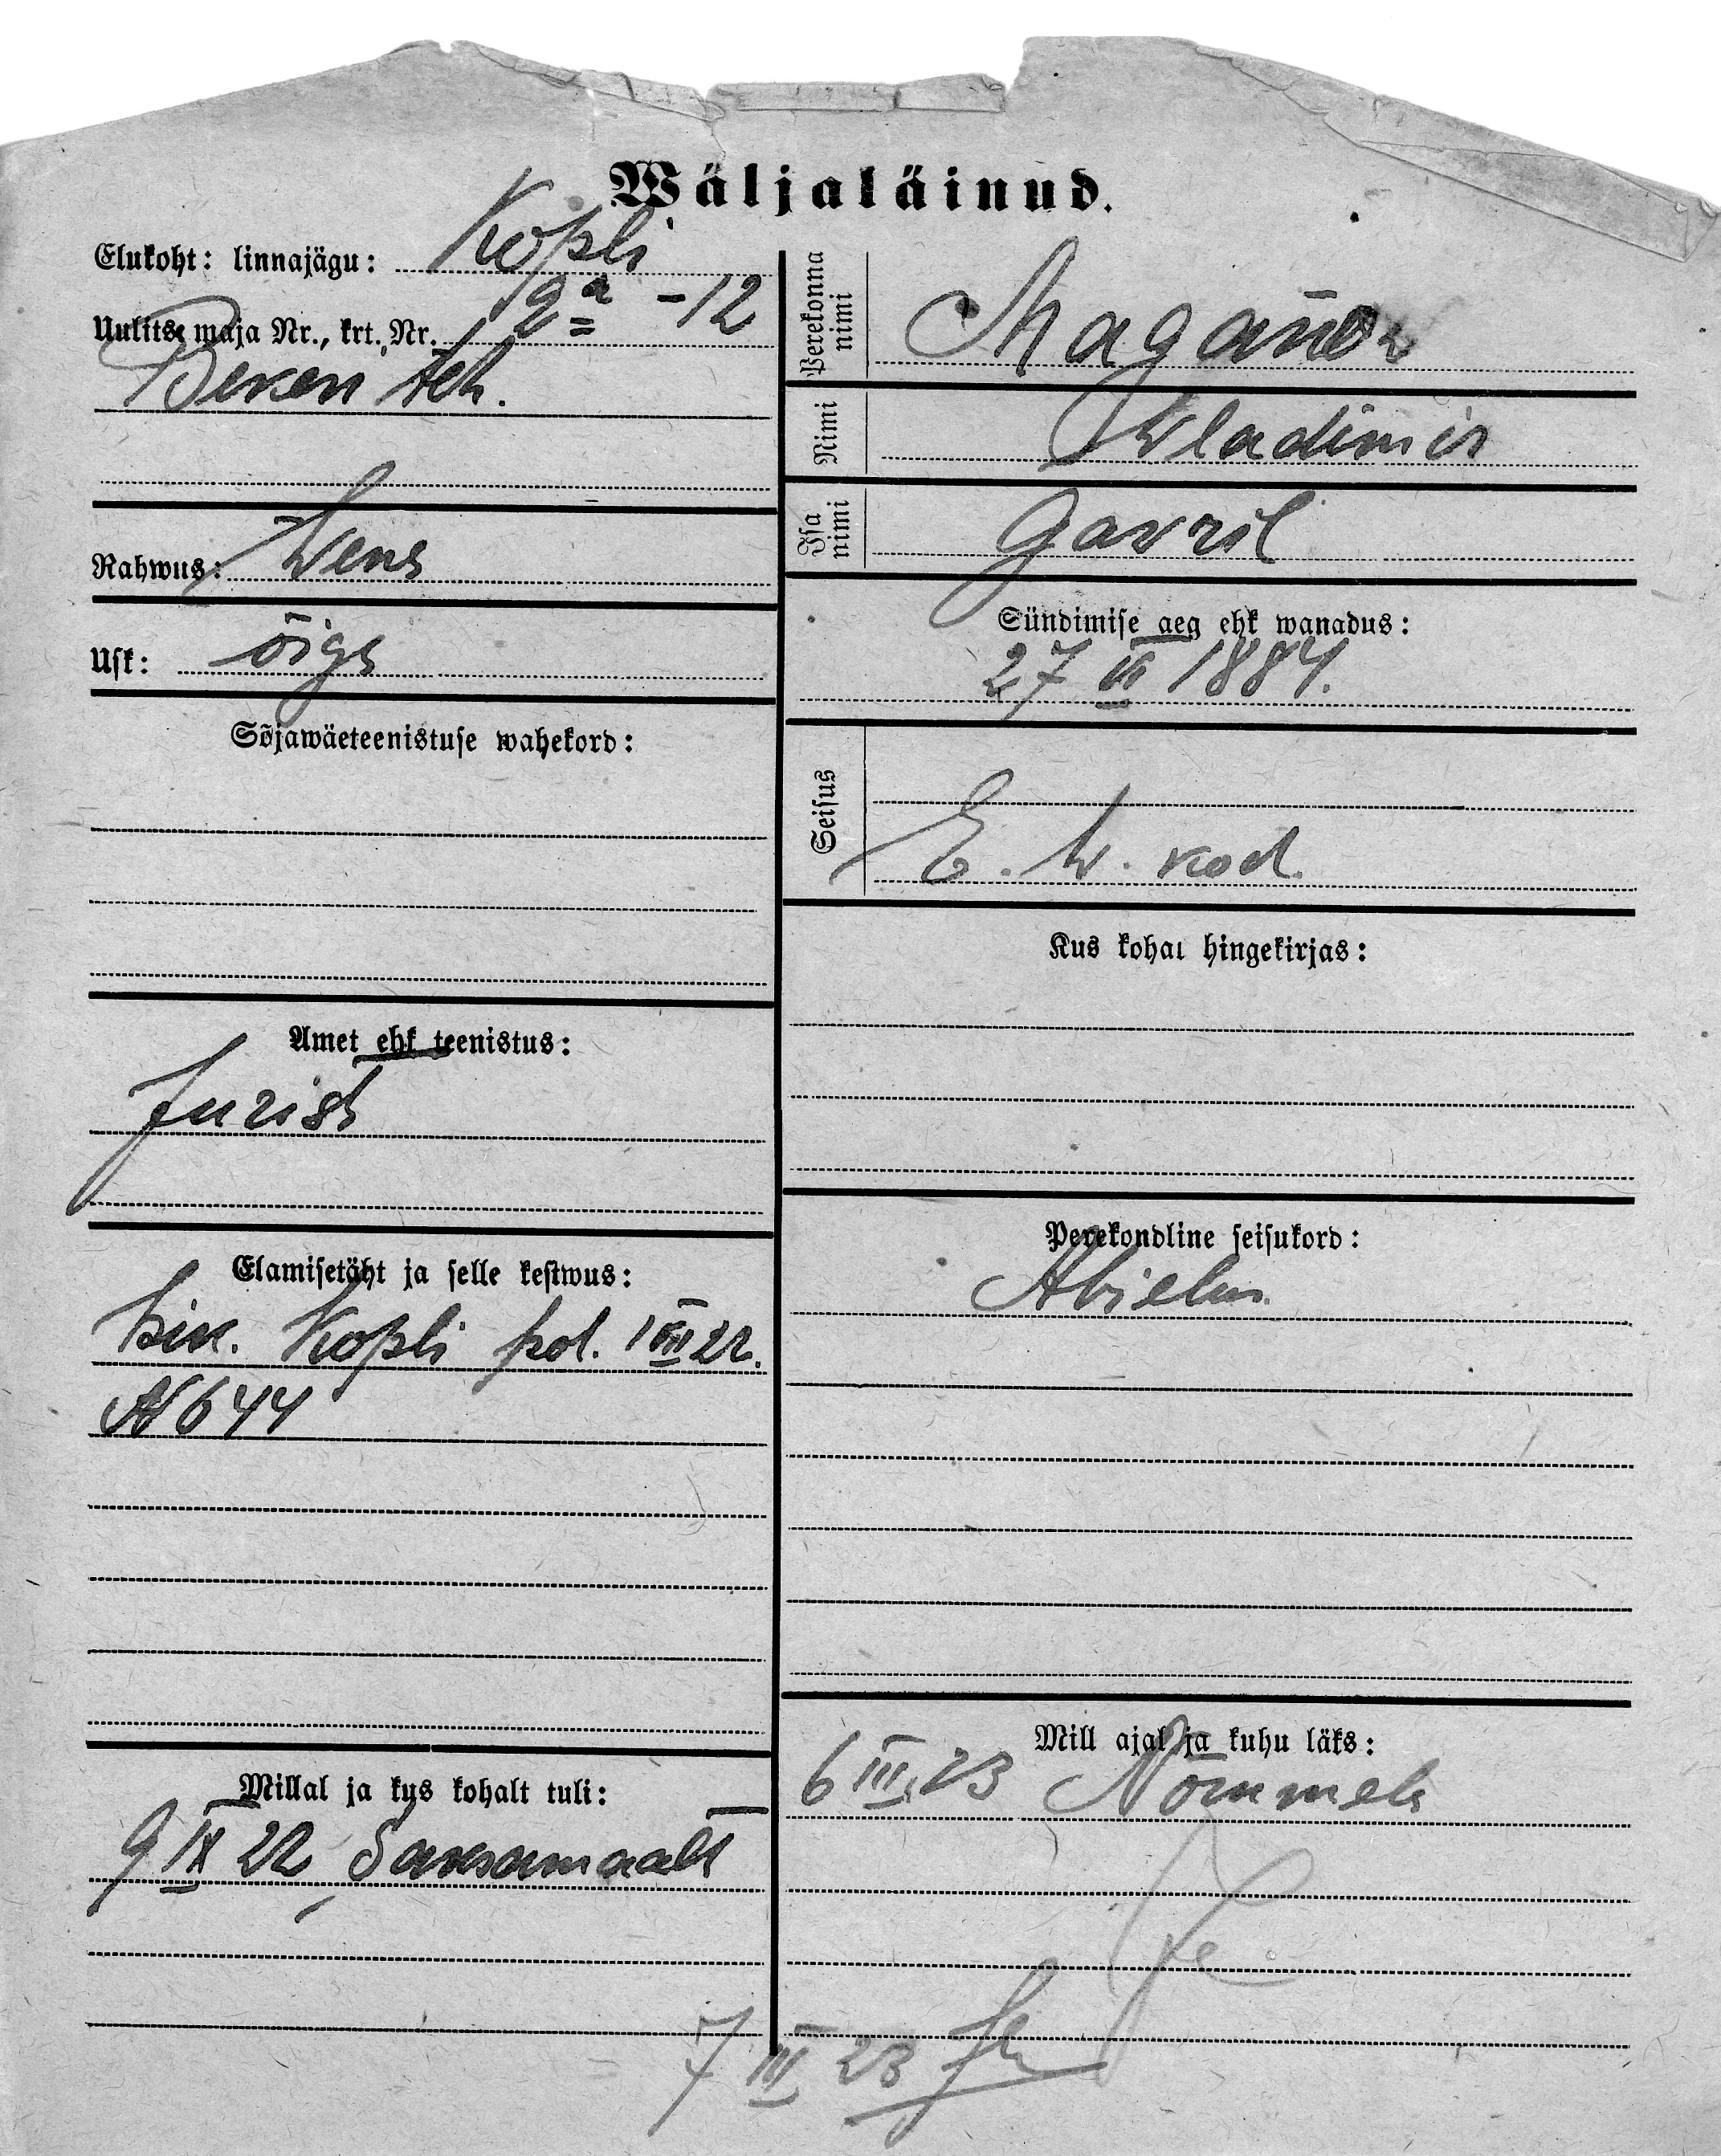 Wäljaläinud.
Elukoht: linnajägu: Kopli
Uulits, maja Nr., krt. Nr. 2a - 12
Bekeri teh.
Rahwus: Wene
Usk: õigs
Sõjawäeteenistuse wahekord:
Amet ehk teenistus:
Jurist
Elamisetäht ja selle kestwus:
Kopli pol. 1 VIII 22.
N 644
Millal ja kus kohalt tuli:
9 IX 22 Saksamaalt
Perekonna nimi Maganow
Nimi Wladimir
Isa nimi Gavril
Sündimise aeg ehk wanadus:
27 VI 1884.
Seisus
E. W. kod.
Kus kohal hingekirjas:
Perekondline seisukord:
Abielus
Mill ajal ja kuhu läks:
6 III 23 Nõmmele
7 III 23